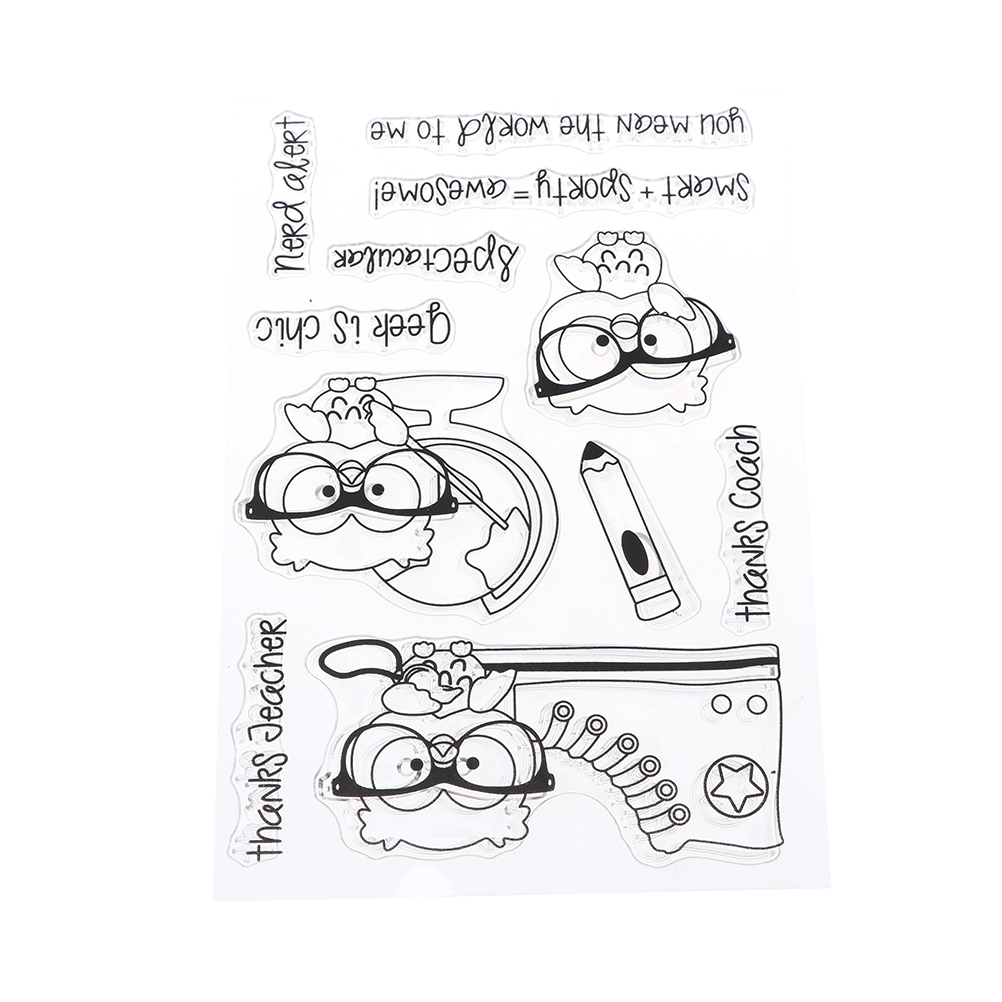 you mean the world to me
smart + sporty = awesome!
nerd alert
spectacular
geek is chic
thanks Coach
thanks Teacher